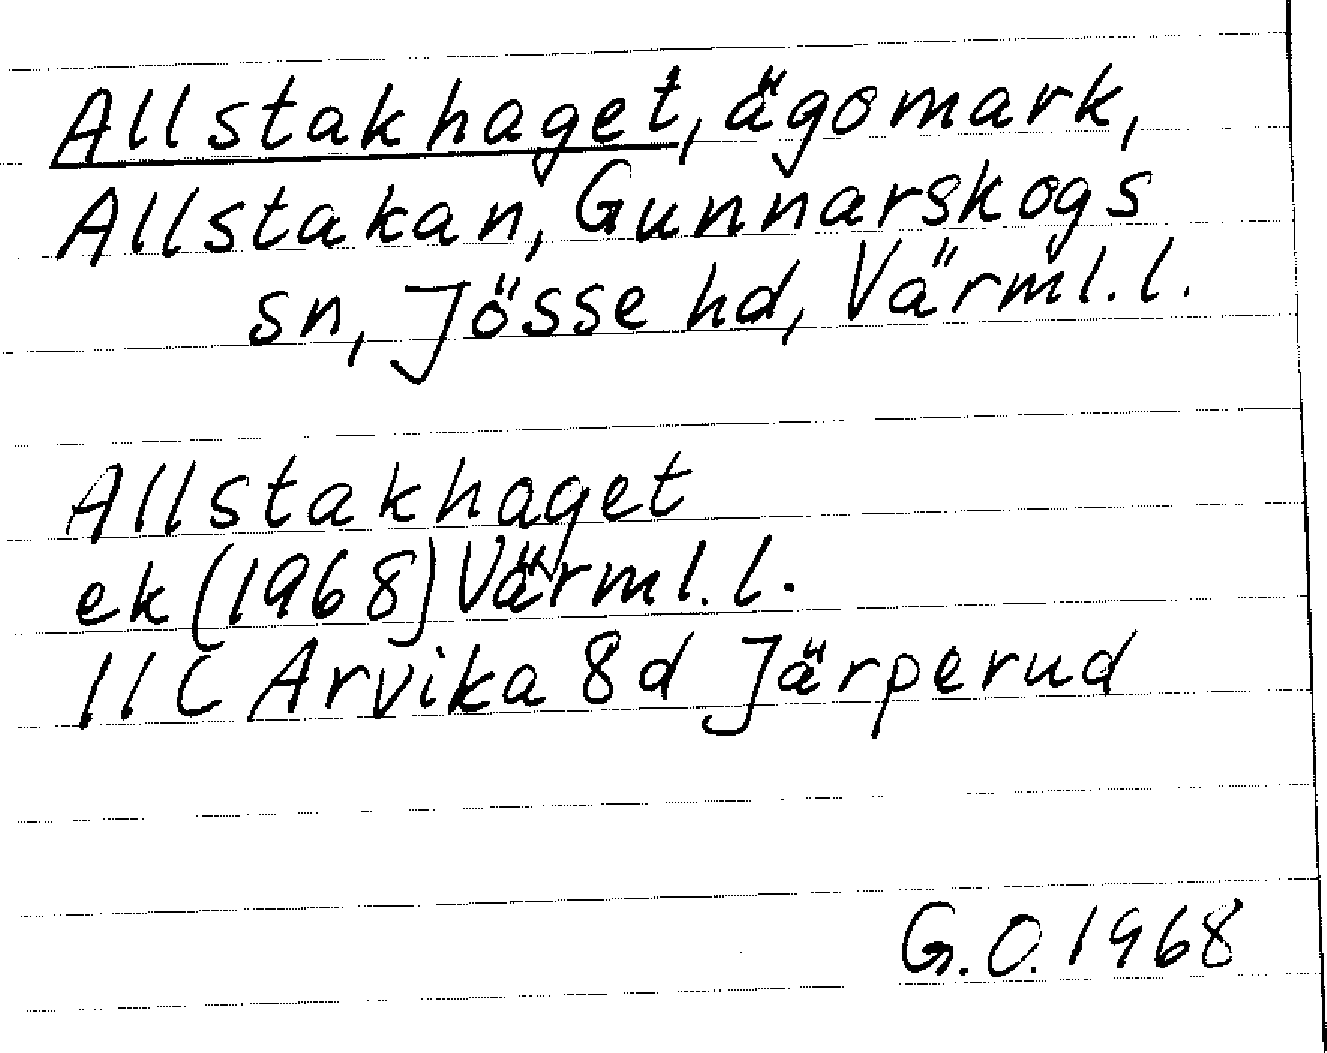 Allstakhaget, ägomark,
Allstakan, Gunnarskogs
sn, Jösse hd, Värml. l.
Allstakhaget
ek (1968) Värml. l.
11C Arvika 8d Järperud
G.O. 1968